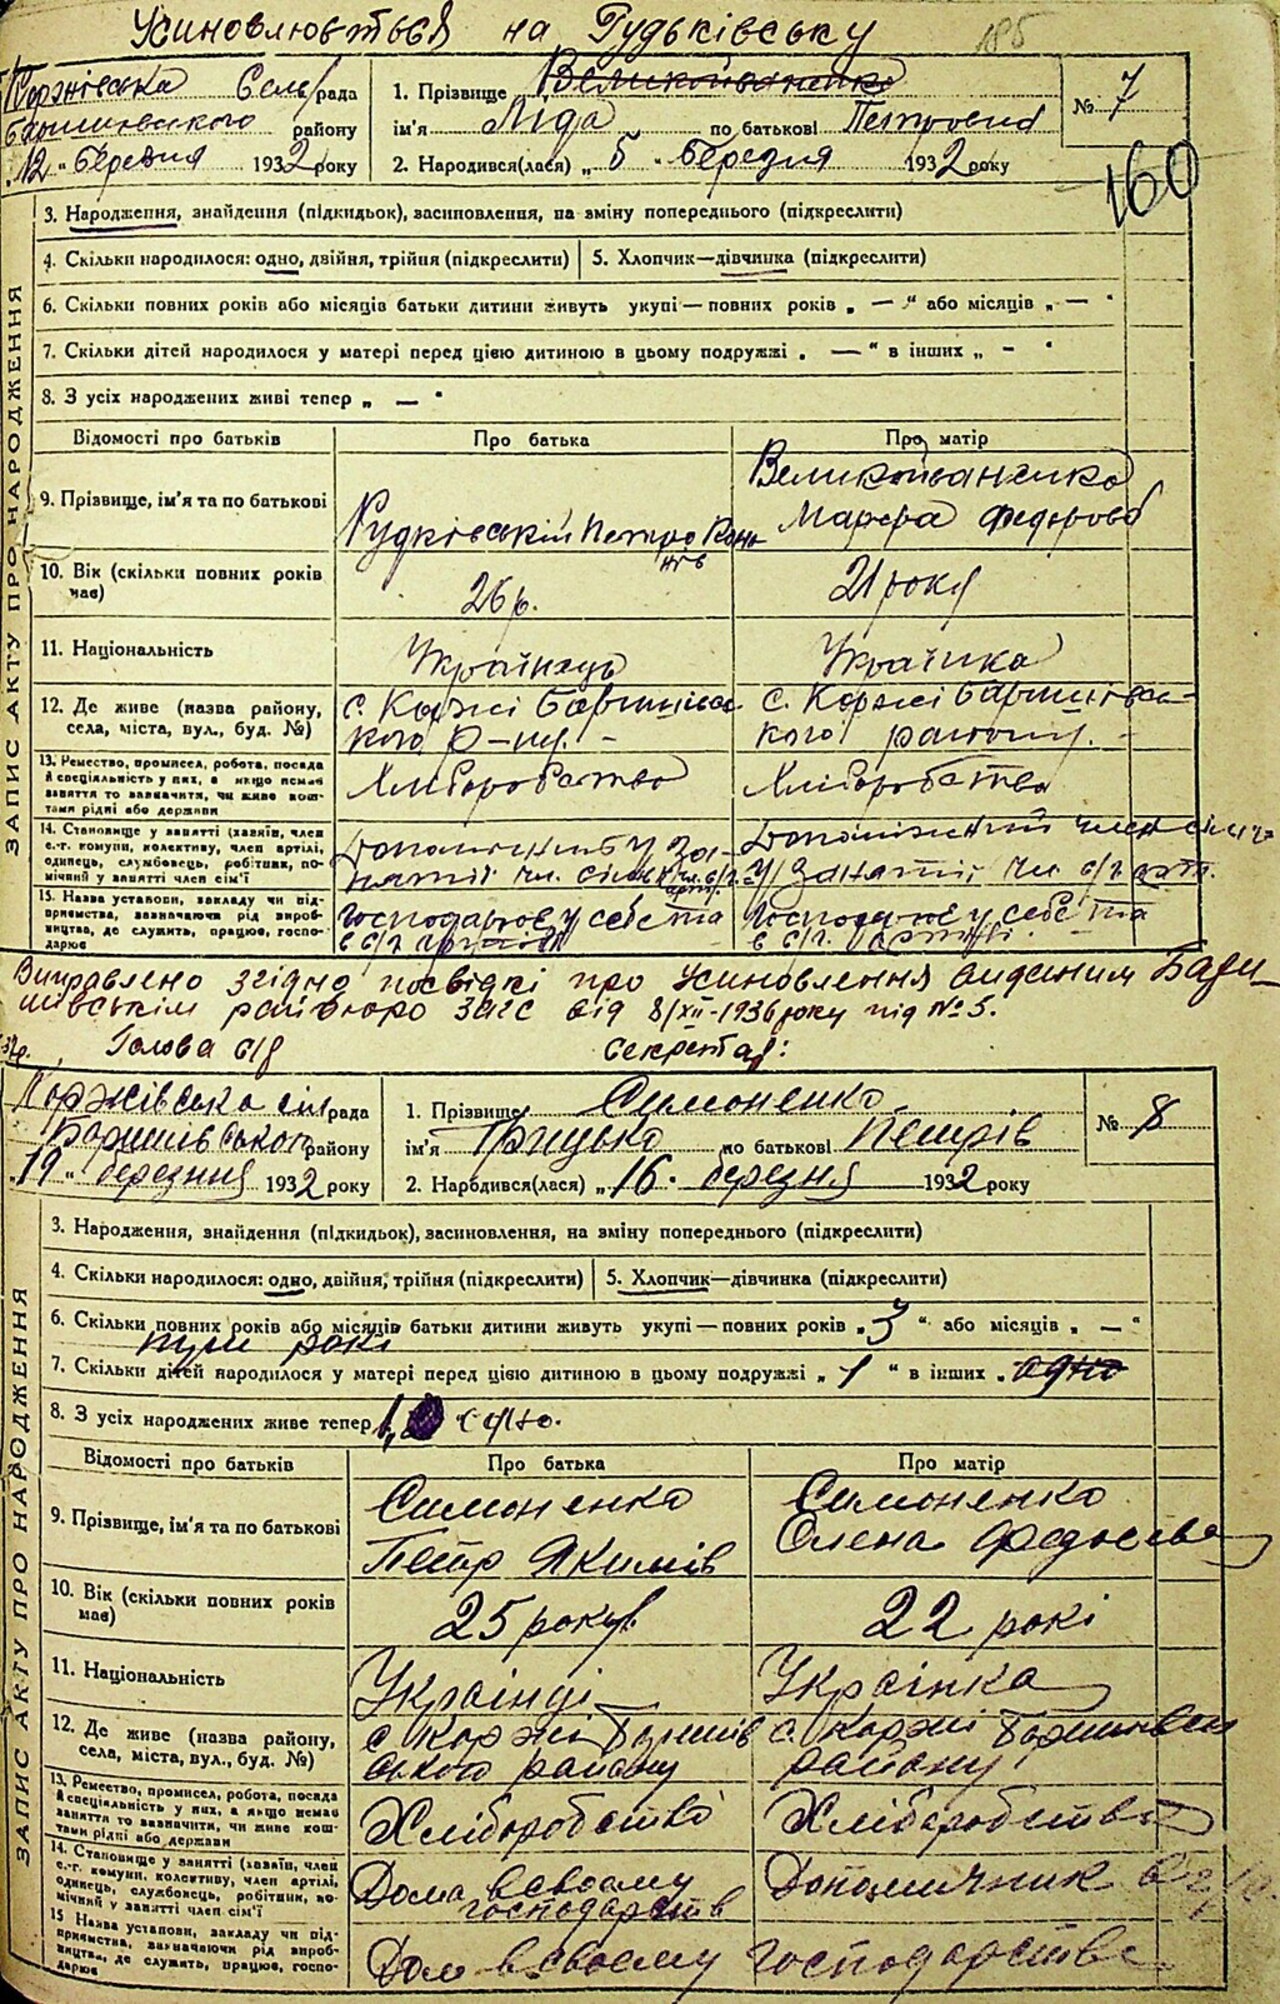 Усиновлюється на Гудьківську
185
Коржівська Сель рада
1. Прізвище Великойваненко
№ 7
району
ім'я Ліда по батькові Петровна
„12 “ березня 1932 року
2. Народився(лася) „ 5 “ березня 1932 року
160
ЗАПИС АКТУ ПРО НАРОДЖЕННЯ
3. Народження, знайдення (підкидьок), засиновлення, на зміну попереднього (підкреслити)
4. Скільки народилося: одно, двійня, трійня (підкреслити)
5. Хлопчик—дівчинка (підкреслити)
6. Скільки повних років або місяців батьки дитини живуть укупі — повних років „ — “ або місяців „ — “
7. Скільки дітей народилося у матері перед цією дитиною в цьому подружжі „ — “ в інших „ - “
8. З усіх народжених живі тепер „ — “
Відомості про батьків
Про батька
Про матір
9. Прізвище, ім'я та по батькові
Гудківській Петро Конь
Великойваненко
Марфа Федорова
10. Вік (скільки повних років
має)
26 р.
21 року
11. Національність
Українець
Українка
12. Де живе (назва району,
села, міста, вул., буд. №)
с. Коржі Баришівсь
кого р-ну. -
с. Коржі Баришівсь-
кого району. -
13. Ремество, промисел, робота, посада
й спеціяльність у них, а якщо немає
заняття то зазначити, чи живе кош-
тами рідні або держави
Хліборобство
Хліборобство
14. Становище у занятті (хазяїн, член
с.-г. комуни, колективу, член артілі,
одинець, службовець, робітник, по-
мічний у занятті член сім'ї
у за-
нятії чл. сім'ї чл. с/г.
арт.
член сім'ї
у занятії чл. с/г. арт.
15. Назва установи, закладу чи під-
приємства, зазначаючи рід вироб-
ництва, де служить, працює, госпо-
дарює
Господарює у себе та
в с/г артілі
Господарює у себе та
в с/г. артілі.
Виправлено згідно посвідкі про Усиновлення виданим Бари-
шівськім райбюро ЗАГС від 8/XII-1936 року під № 5.
Голова с/р Секретар:
Коржівська сіл рада
1. Прізвище Симоненко
№ 8
Баришівського району
ім'я Грицько по батькові Петрів
„19 “ березня 1932 року
2. Народився(лася) „16 “ березня 1932 року
ЗАПИС АКТУ ПРО НАРОДЖЕННЯ
3. Народження, знайдення (підкидьок), засиновлення, на зміну попереднього (підкреслити)
4. Скільки народилося: одно, двійня, трійня (підкреслити)
5. Хлопчик—дівчинка (підкреслити)
6. Скільки повних років або місяців батьки дитини живуть укупі — повних років „ 3 “ або місяців „ — “
три рокі
7. Скільки дітей народилося у матері перед цією дитиною в цьому подружжі „ 1 “ в інших „ одно
8. З усіх народжених живе тепер „ 1
Відомості про батьків
Про батька
Про матір
9. Прізвище, ім'я та по батькові
Симоненко
Петр Якимів
Симоненко
Олена Федосієва
10. Вік (скільки повних років
має)
25 року
22 рокі
11. Національність
Українці
Українка
12. Де живе (назва району,
села, міста, вул., буд. №)
с Коржі Баришів
ського району
с. Коржі
району
13. Ремество, промисел, робота, посада
й спеціяльність у них, а якщо немає
заняття то зазначити, чи живе кош-
тами рідні або держави
Хліборобство
Хліборобство
14. Становище у занятті (хазяїн, член
с.-г. комуни, колективу, член артілі,
одинець, службовець, робітник, по-
мічний у занятті член сім'ї
Дома всвоему
господарств
Допомичник
15 Назва установи, закладу чи під-
приємства, зазначаючи рід вироб-
ництва, де служить, працює, госпо-
дарює
Дом всвоему господарстве